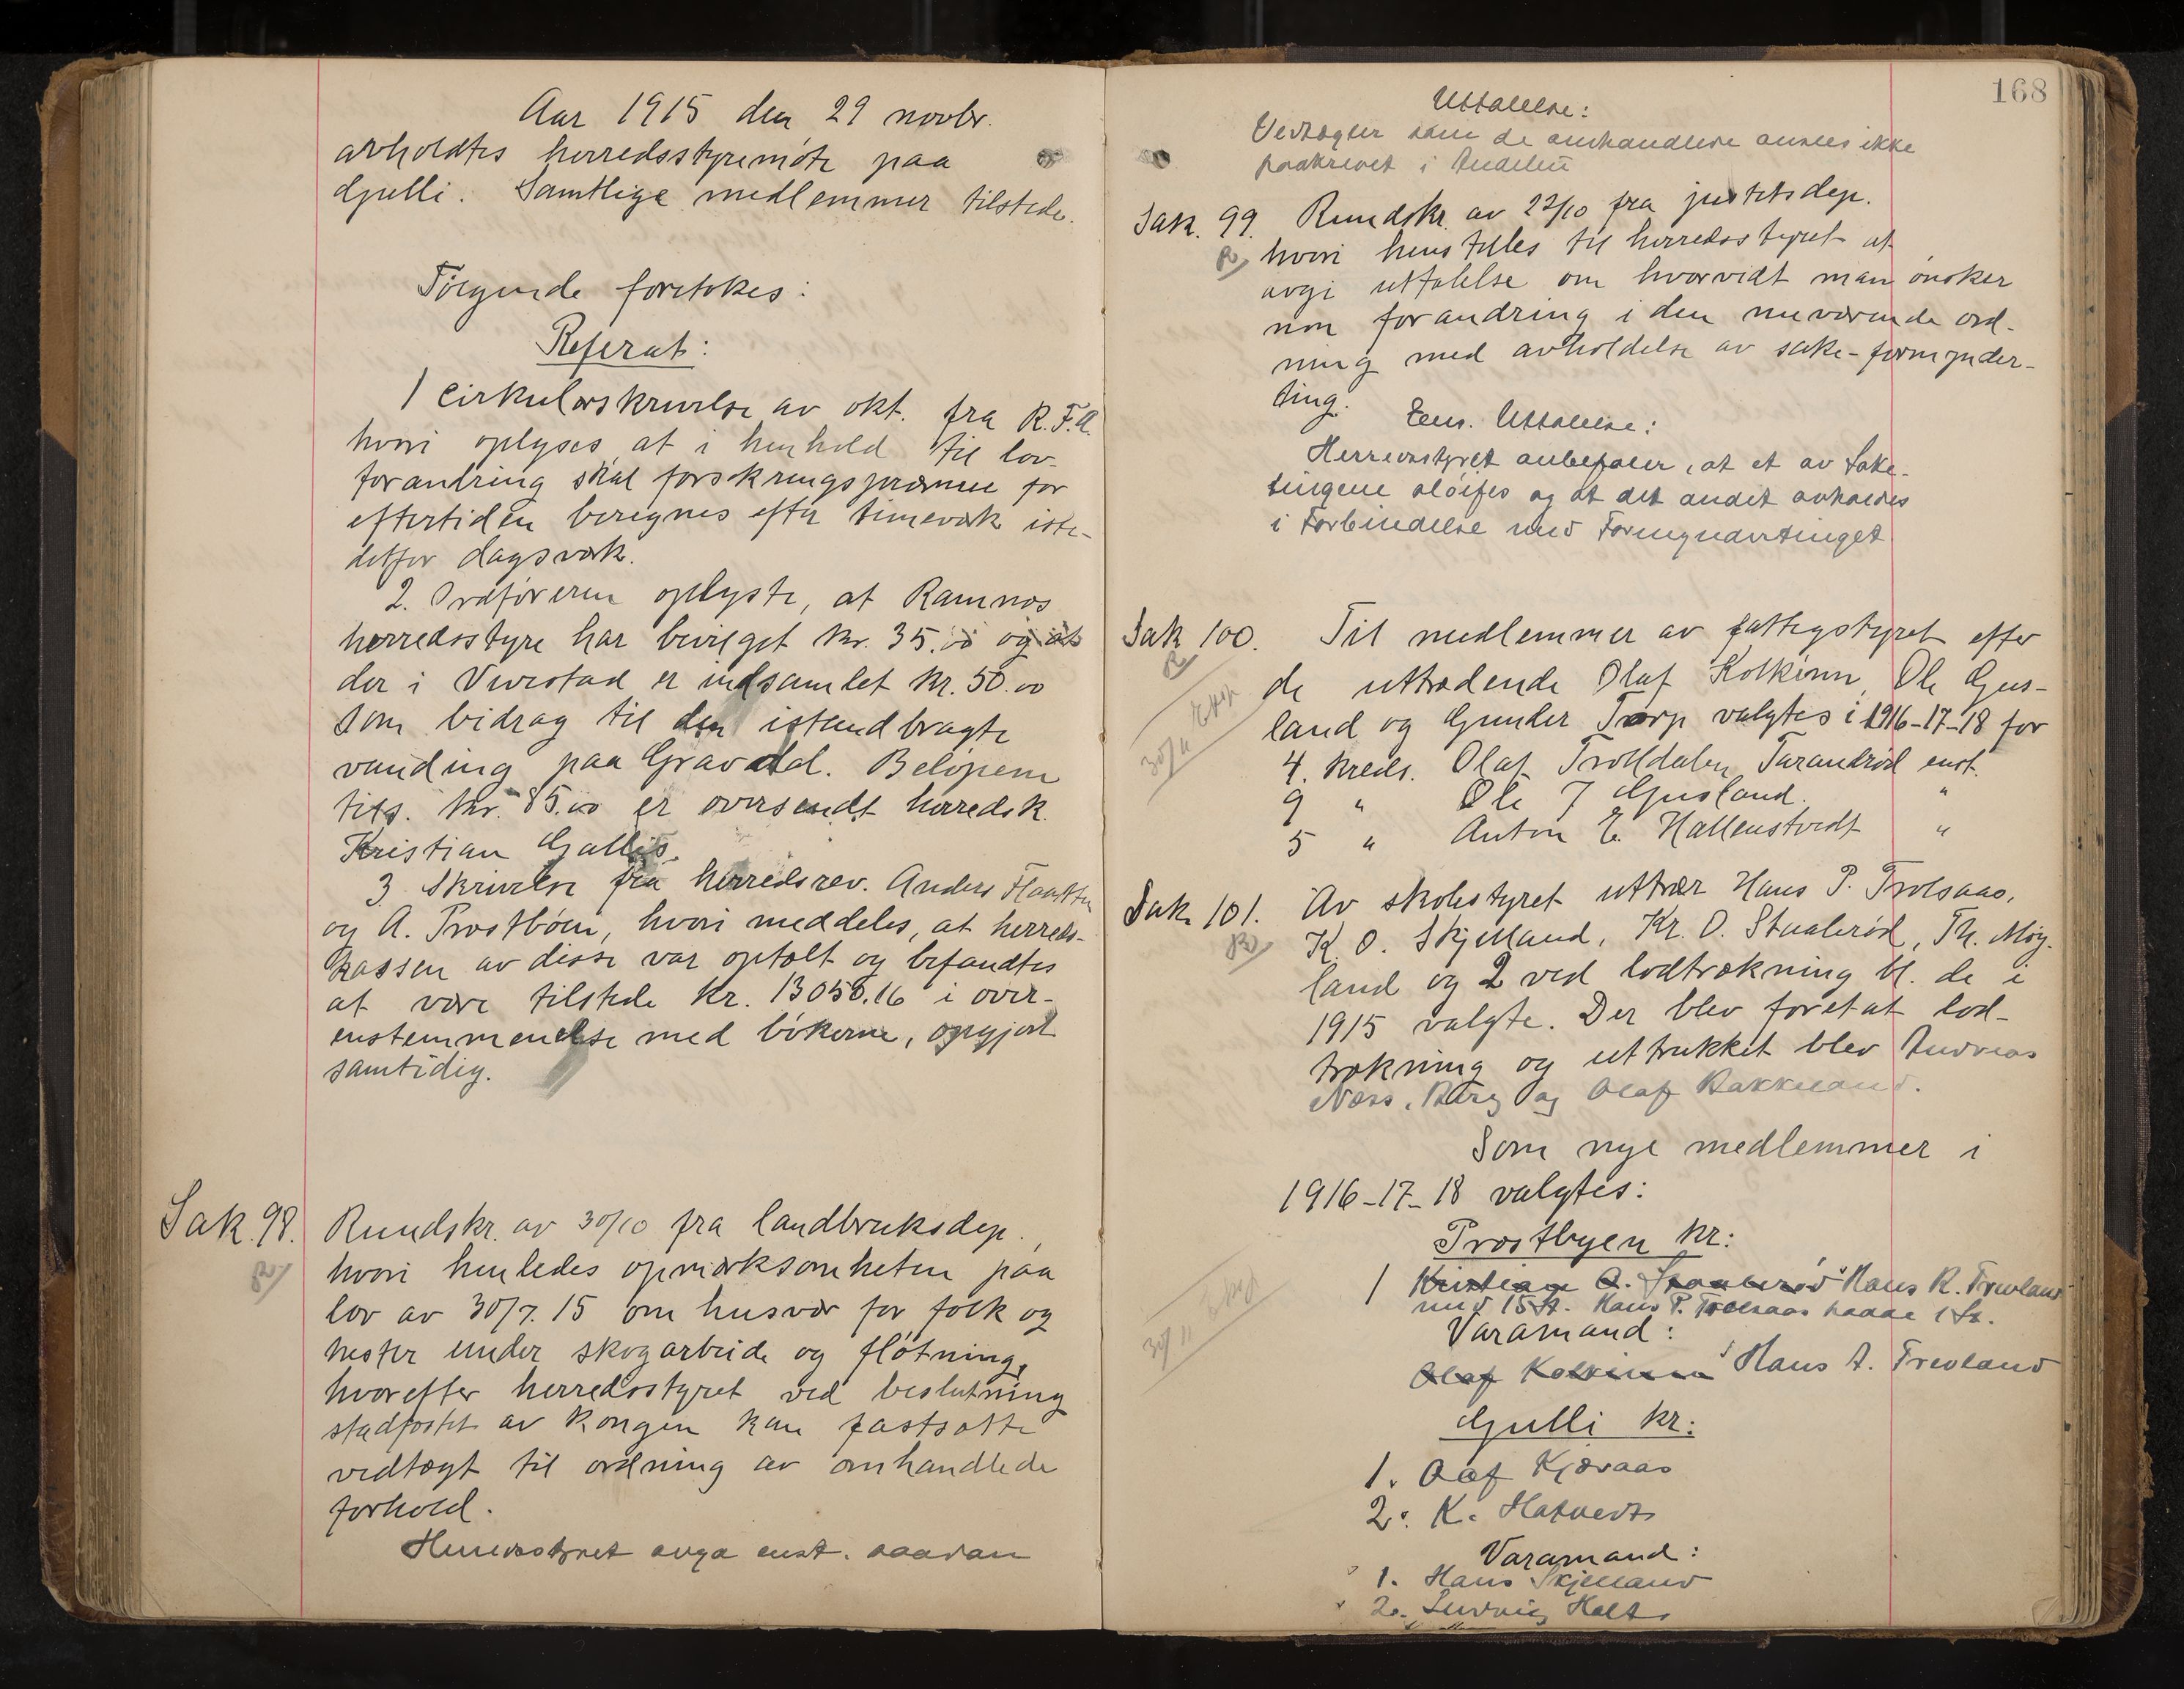 Aar 1915 den 29 novbr.
avholdtes herredsstyremöte paa
Gjulli. Samtlige medlemmer tilstede.
Følgende foretokes:
Referat:
1 Cirkulærskrivelse av okt. fra R.F.A.
hvori oplyses, at i henhold til lov-
forandring skal forsikringspræmie for
eftertiden beregnes efter timeverk iste-
detfor dagsverk.
2. Ordföreren oplyste, at Ramnes
herredsstyre har bevilget kr. 35.00 og at
der i Vivestad er indsamlet kr. 50.00
som bidrag til den istandbragte
vanding paa Gravdal. Belöpene
tils. kr. 85.00 er oversendt herredsk.
Kristian Gallis.
3. Skrivelse fra herredsrev. Anders Flaatten
og A. Prestbøen, hvori meddeles, at herreds-
kassen av disse var optalt og befandtes
at være tilstede kr. 13058.16 i over-
enstemmendse med bökerne, opgjort
samtidig.
Sak. 98. Rundskr. av 30/10 fra landbruksdep.,
hvori henledes opmærksomheten paa
lov av 30/7.15 om husvær for folk og
hester under skogarbeide og flötning,
hvorefter herredsstyret ved beslutning
stadfæstet av kongen kan fastsætte
vedtægt til ordning av omhandlede
forhold.
Herredsstyret avga enst. saadan
168
Uttalelse:
Vedtægter som de omhandlede ansees ikke
paakrevet i Andebu
Sak. 99. Rundskr. av 22/10 fra justitsdep.
hvori henstilles til herredsstyret at
avgi uttalelse om hvorvidt man önsker
non forandring i den nuværende ord-
ning med avholdelse av sake-formynder-
ting.
Ens. Uttalelse:
Herredsstyret anbefaler, at et av Sake-
tingene slöifes og at det andet avholdes
i Forbindelse med Formyndertinget
Sak 100. Til medlemmer av fattigstyret efter
de uttrædende Olaf Kolkinn, Ole Gjus-
land og Gunder Torp valgtes i 1916-17-18 for
4. kreds. Olaf Trolldalen Taranrød enst.
9 " Ole J Gjusland. "
5 " Anton E. Hallenstvedt "
30/11
Sak 101. Av skolestyret uttrær Hans P. Trolsaas,
K. O. Skjelland, Kr. O. Staalerød, Th. Möy-
land og 2 ved lodtrækning bl. de i
1915 valgte. Der blev foretat lod-
trækning og uttrukket blev Andreas
Næss, Berg og Olaf Bakkeland.
Som nye medlemmer i
1916-17-18 valgtes:
Prestbyen kr:
1 Kristian O. Staalerød Hans R. Trevland
med 15 St. Hans P. Trolsaas hadde 1 St.
Varamand:
Olaf Kolkinn Hans A. Trevland
30/11
Gulli kr:
1. Olaf Kjæraas
2. K. Hotvedt
Varamand:
1. Hans Skjelland
2. Ludvig Holt